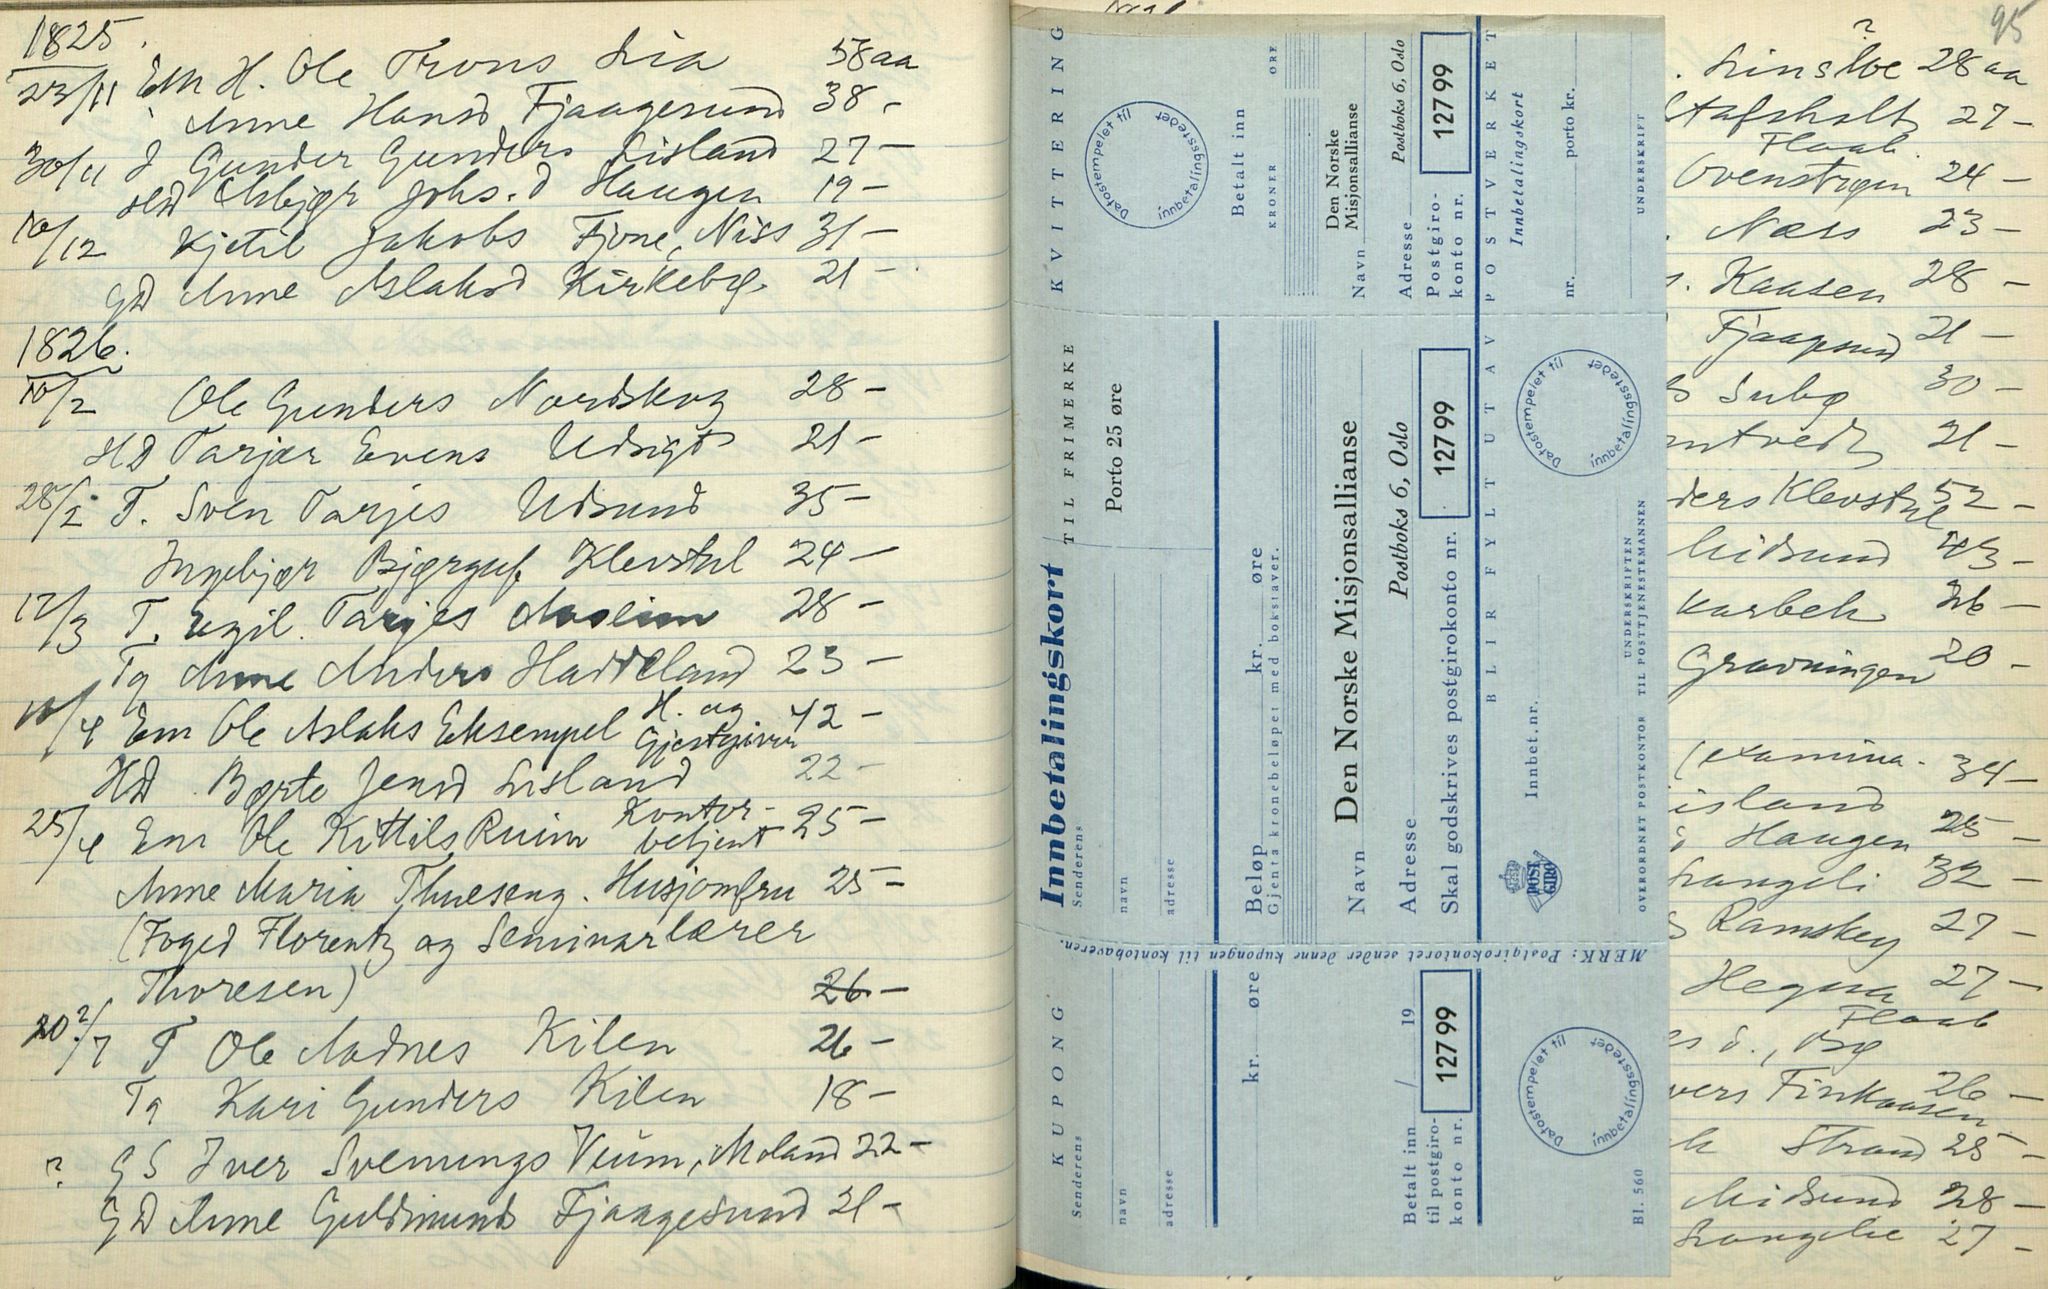 1825.
23/11 Em H. Ole Trons Lia 58 aa
Anne Hansd Fjaagesund 38 -
30/11 d Gunder Gunders Lisland 27 -
Asbjør Johs. d Haugen 19 -
10/12 Kjetil Jakobs Fjone, Niss 31 -
GD Anne Aslaksd Kirkebø. 21 -
1826.
10/2 Ole Gunders Nordskog 28 -
HD Tarjær Evens Udsigt 21 -
28/2 T. Sven Tarjes Udsund 35 -
Ingebjør Bjørgulf Klevstul 24 -
12/3 T. Egil Tarjes 28 -
Tg Anne Anders Haddeland 23 -
10/4 Em Ole Aslaks Eksempel H. og Gjestgiver 42 -
HD Børte Jensd Lisland 22 -
25/4 Em Ole Kittils Ruim Kontorbetjent 25 -
Anne Maria Thueseng. Husjomfru 25 -
(Foged Florentz og Seminarlærer
Thoresen) 26 -
20?/7 T Ole Aadnes Kilen 26 -
Tg Kari Gunders Kilen 18 -
? GS Iver Svenungs Vium, Moland 22 -
GD Anne Guldmunds Fjaagesund 21 -
KVITTERING
Datostempelet til innbetalingsstedet
Betalt inn
KRONER ØRE
Navn Den Norske Misjonsallianse
Adresse Postboks 6, Oslo
Postgirokonto nr. 127 99
POSTVERKET
Innbetalingskort
nr. porto kr.
UNDERSKRIFT
Innbetalingskort
TIL FRIMERKE
Porto 25 øre
Senderens
navn
adresse
Beløp kr. øre
Gjenta kronebeløpet med bokstaver.
Navn Den Norske Misjonsallianse
Adresse Postboks 6, Oslo
Skal godskrives postgirokonto nr. 127 99
BLIR FYLT UT AV
Innbet.nr.
Datostempelet til innbetalingsstedet
POST GIRO
UNDERSKRIFTEN
OVERORDNET POSTKONTOR TIL POSTTJENESTEMANNEN
MERK: Postgirokontoret sender denne kupongen til kontohaveren.
KUPONG
Senderens
navn
adresse
kr. øre
Betalt inn / 19
til postgirokonto nr. 127 99
Datostempelet til innbetalingsstedet
Bl. 560
95
?
28 aa
27 -
Flaab.
24 -
Næss 23 -
Kaasen 28 -
Fjaagesund 21 -
30 -
21 -
ders Klevstul 52 -
Midsund 43 -
26 -
Gravningen 20 -
(examina- 34 -
island
Haugen 25 -
Langeli 32 -
27 -
Hegna 27 -
Flaab
s d., Bø
vers Finkaasen 26 -
Strand 25 -
Midsund 28 -
Langelie 27 -